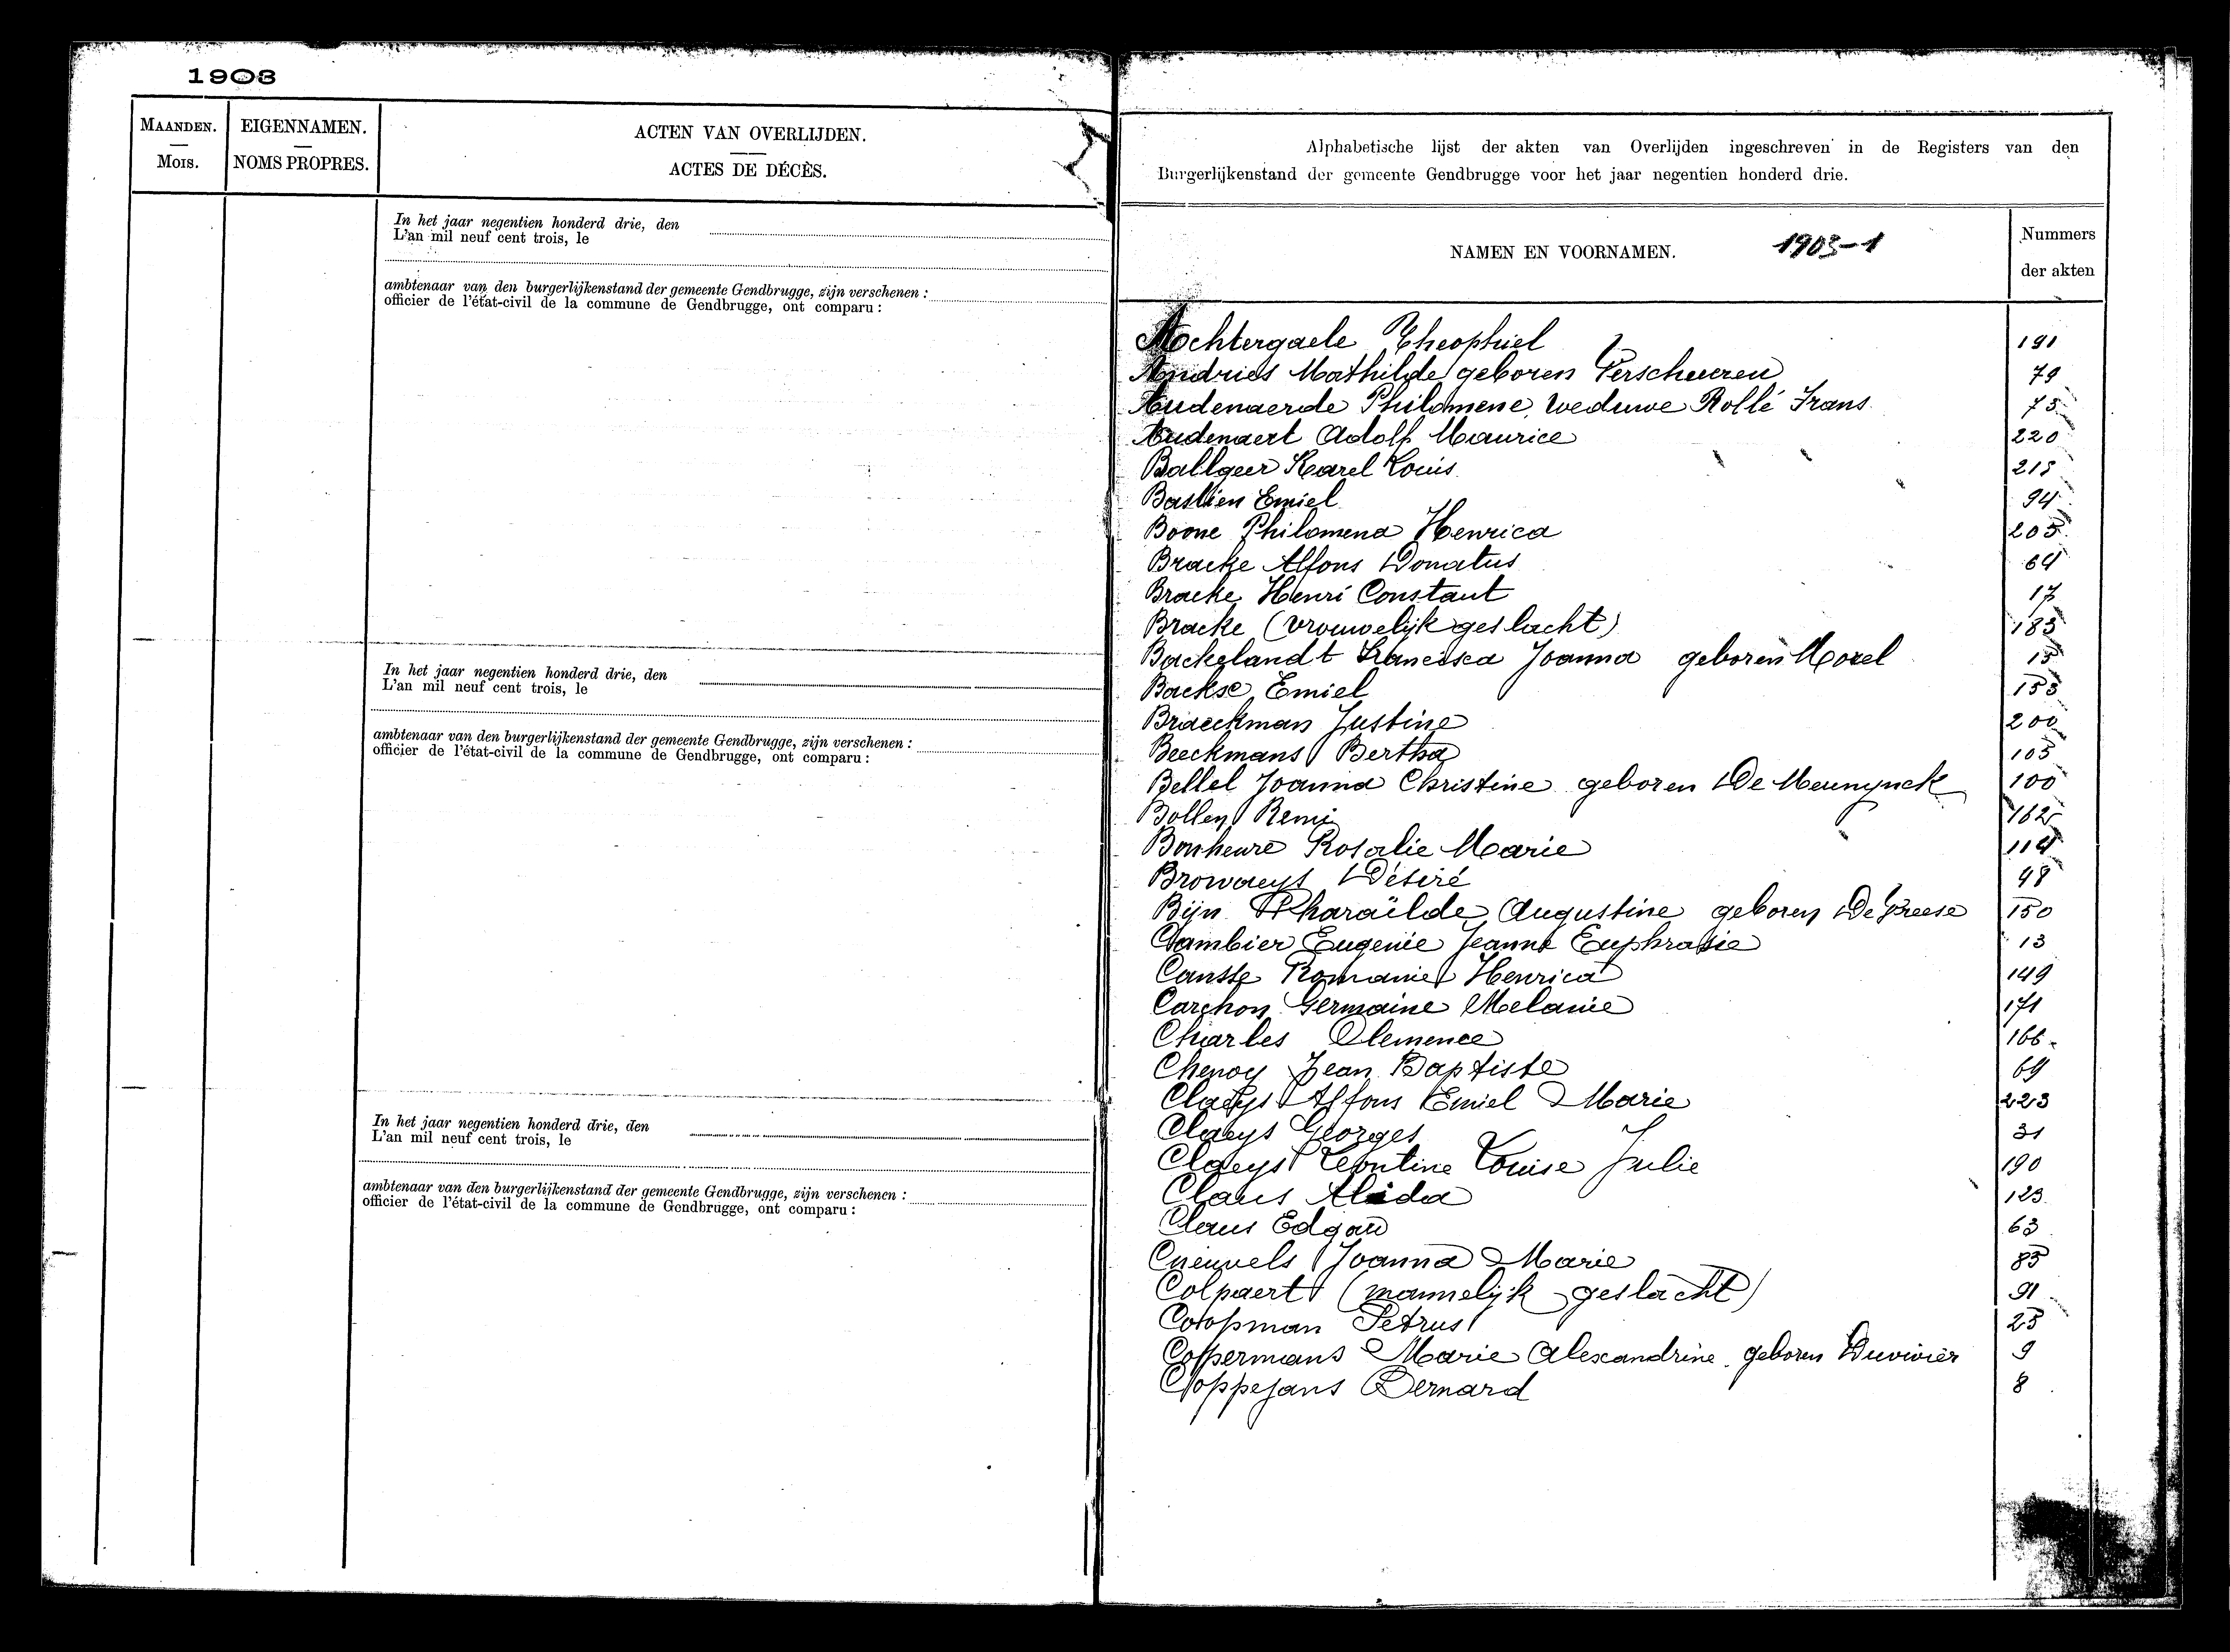 1903
MAANDEN.
MOIS.
EIGENNAMEN.
NOMS PROPRES.
ACTEN VAN OVERLIJDEN.
ACTES DE DÉCÈS.
In het jaar negentien honderd drie, den
L'an mil neuf cent trois, le
ambtenaar van den burgerlijkenstand der gemeente Gendbrugge, zijn verschenen :
officier de l'état-civil de la commune de Gendbrugge, ont comparu :
In het jaar negentien honderd drie, den
L'an mil neuf cent trois, le
ambtenaar van den burgerlijkenstand der gemeente Gendbrugge, zijn verschenen :
officier de l'état-civil de la commune de Gendbrugge, ont comparu :
In het jaar negentien honderd drie, den
L'an mil neuf cent trois, le
ambtenaar van den burgerlijkenstand der gemeente Gendbrugge, zijn verschenen :
officier de l'état-civil de la commune de Gendbrugge, ont comparu :
Alphabetische lijst der akten van Overlijden ingeschreven in de Registers van den
Burgerlijkenstand der gemeente Gendbrugge voor het jaar negentien honderd drie.
NAMEN EN VOORNAMEN. 1903-1
Nummers
der akten
Achtergaele Theophiel 191
Andries Mathilde geboren Verscheueren 79
Audenaerde Philomene, weduwe Rollé Frans 75
Audenaert Adolf Maurice 220
Ballgeer Karel Louis 215
Bastien Emiel 94
Boone Philomena Henrica 205
Bracke Alfons Donatus 64
Bracke Henri Constant 17
Bracke (vrouwelijk geslacht) 185
Backelandt Francisca Joanna geboren Morel 15
Backse Emiel 155
Braeckman Justine 200
Beeckmans Bertha 105
Bellel Joanna Christine geboren De Meunynck 100
Bollen Remi 162
Bonheure Rosalie Marie 114
Browaeys Désiré 48
Bijn Pharaïlde Augustine geboren De Vreese 150
Cambier Eugenie Jeanne Euphrasie 13
Cansse Romanie Henrica 149
Carchon Germaine Melanie 171
Charles Clemence 166
Chenoy Jean Baptiste 69
Claeys Alfons Emiel Marie 223
Claeys Georges 31
Claeys Leontine Louise Julie 190
Claus Alida 123
Claus Edgard 63
Cneuvels Joanna Marie 85
Colpaert (mannelijk geslacht) 91
Coopman Petrus 25
Coppermans Marie Alexandrine geboren Duvivier 9
Coppejans Bernard 8